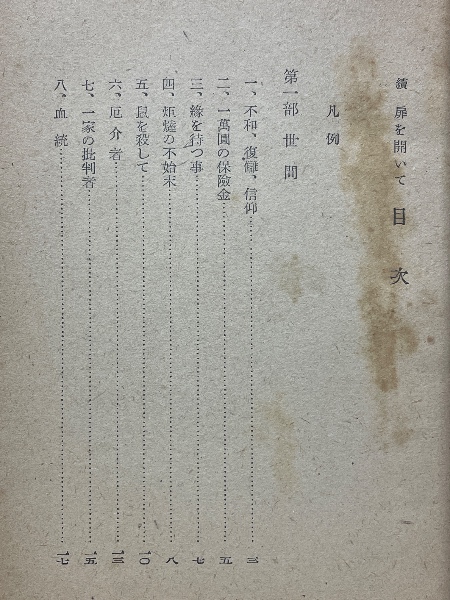 續 扉を開いて 目次
凡例
第一部 世間
一、不和、復讎、信仰……三
二、一萬圓の保險金……五
三、緣を待つ事……七
四、炬燵の不始末……八
五、鼠を殺して……一〇
六、厄介者……一三
七、一家の批判者……一五
八、血統……一七